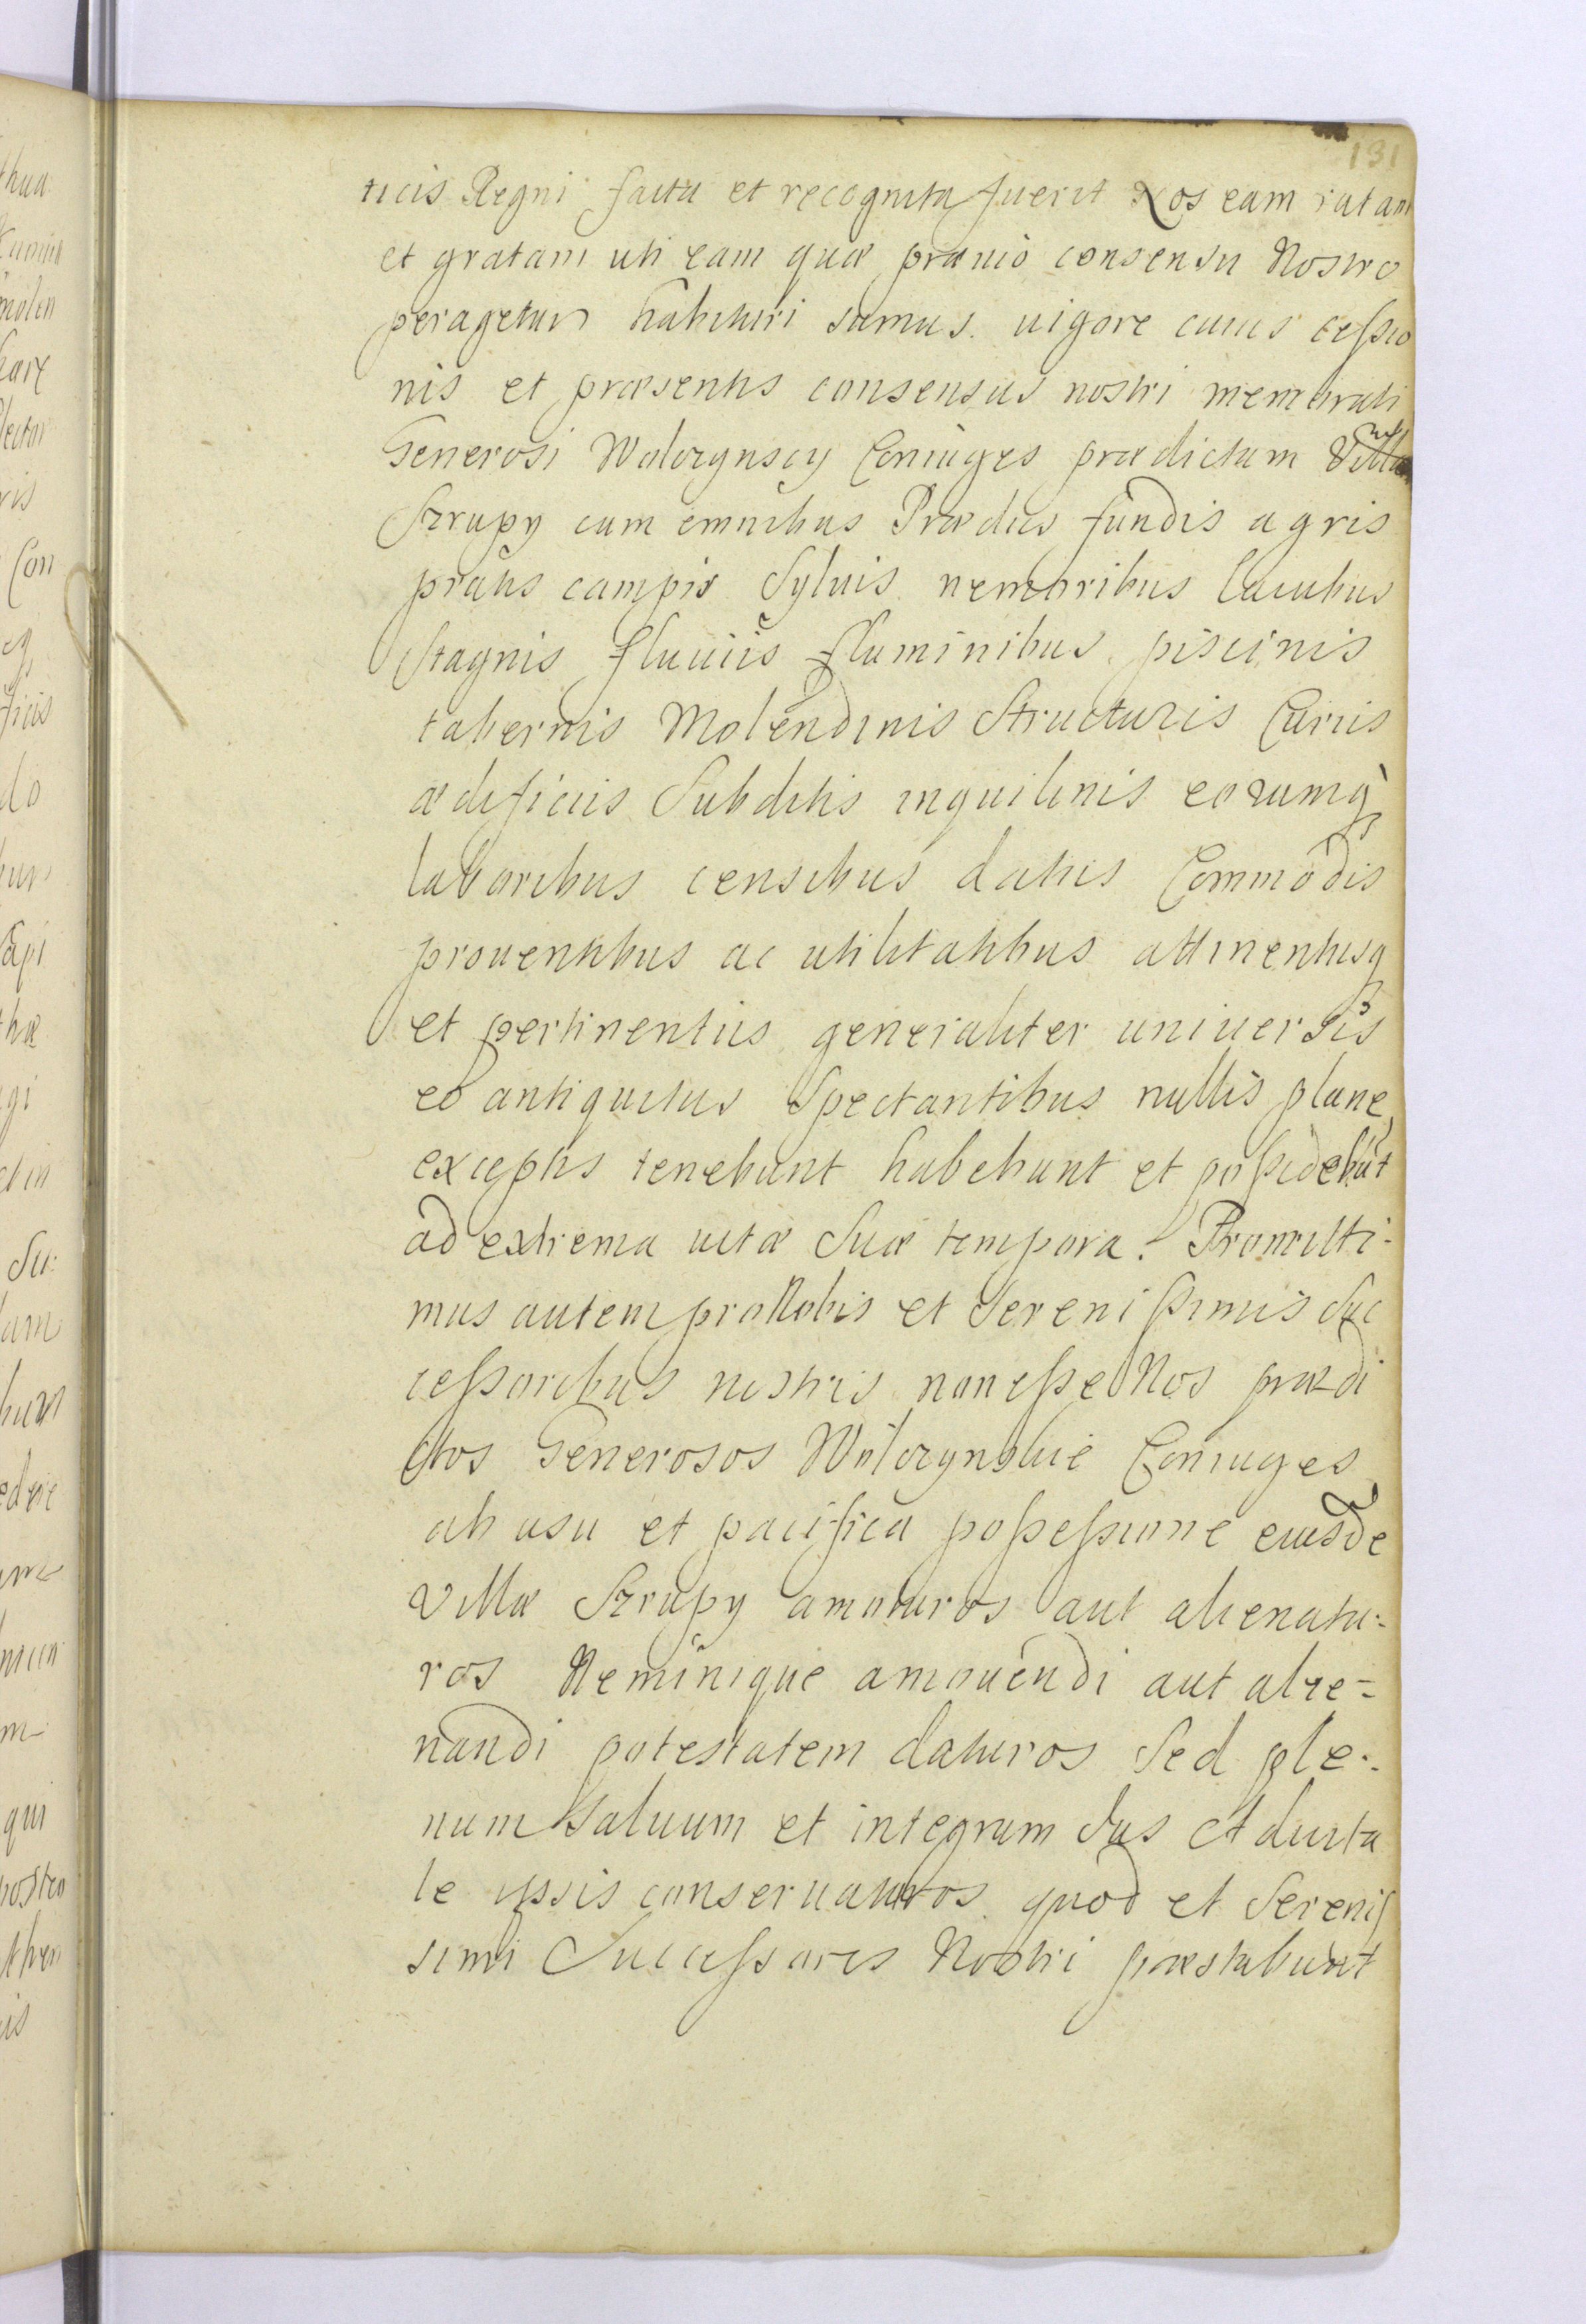 131
ticis Regni facta et recognita fuerit Nos eam ratam
et gratam uti eam quæ prævio consensu Nostro
peragetur habituri sumus. uigore cuius cessio
nis et præsentis consensus nostri memorati
Generosi Wolczynscy Coniuges prædictam Villã
Szrupy cum omnibus Prædiis fundis agris
pratis campis Syluis nemoribus lacubus
Stagnis fluuiis fluminibus piscinis
tabernis Molendinis Structuris Curiis
ædificiis Subditis inquilinis eorumq
laboribus censibus datiis Commodis
prouentibus ac utilitatibus attinentiisq
et pertinentiis generaliter uniuersis
eo antiquitus Spectantibus nullis plane
exceptis tenebunt habebunt et possidebũt
ad extrema uitæ Suæ tempora. Promitti-
mus autem pro Nobis et Serenissimis Suc
cessoribus nostris non esse Nos prædi
ctos Generosos Wolczynskie Coniuges
ab usu et pacifica possessione eiusdẽ
Villæ Szrupy amoturos aut alienatu-
ros Neminique amouendi aut alie-
nandi potestatem daturos Sed ple-
num Saluum et integrum Ius Aduita
le ipsis conseruaturos quod et Serenis
simi Successores Nostri præstabunt